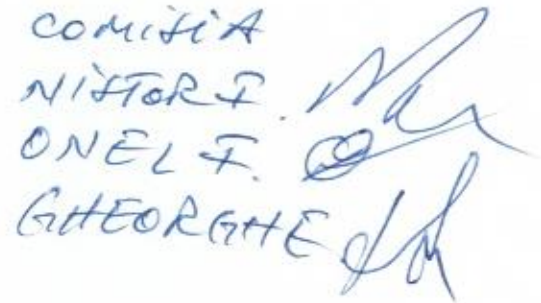 COMISIA
NISTOR I.
ONEL I.
GHEORGHE